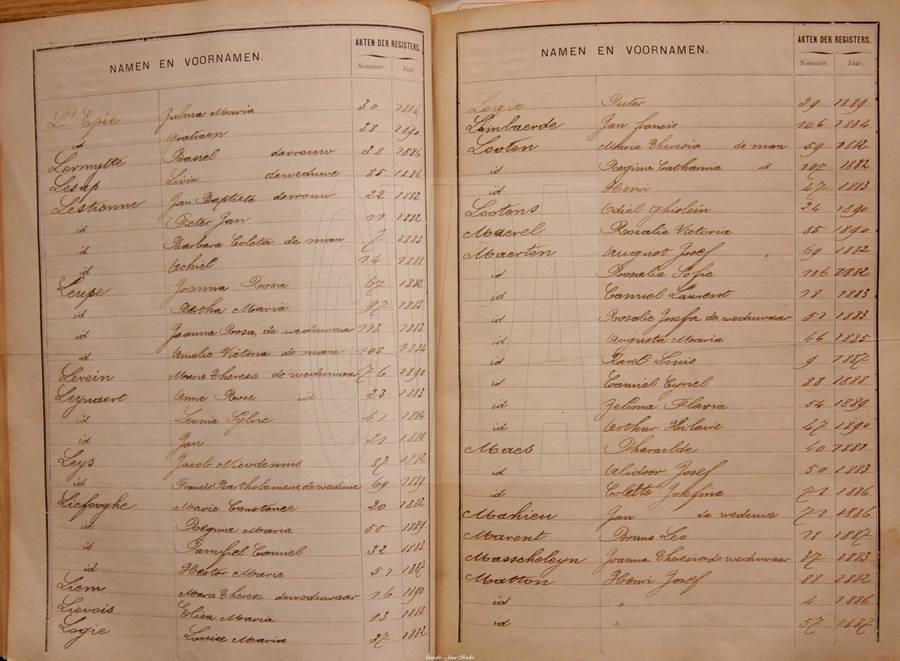 NAMEN EN VOORNAMEN.
AKTEN DER REGISTERS.
Nummer. Jaar.
L'Epée Zulma Maria 30 1884
id Gratiaen 38 1890
Lermytte Basiel de vrouw 28 1886
Lesap Livin de weduwe 85 1886
Lestienne Jan Baptiste de vrouw 22 1882
id Pieter Jan 11 1882
id Barbara Coleta de man 7 1883
id Achiel 14 1888
Leupe Joanna Rosa 67 1882
id Maria 97 1883
id Joanna Rosa, de weduwaar 113 1883
id Amelie Victoria de man 1884
Lewein Marie Therese de weduwaar 76 1890
Leynaert Anne Rose id 23 1883
id Leonie Sylvie 41 1886
id Jan 1888
Leys Jacob 87 1882
id Francis Bartholomeus de weduwe 69 1889
Liefooghe Marie Constance 20 1882
id Regina Maria 55 1889
id Camiel 32 1883
id Hector Marie 51 1887
Liem Marie Therese de weduwaar 16 1890
Lievois Elisa Maria 13 1883
Logie Louise Maria 37 1882
NAMEN EN VOORNAMEN.
AKTEN DER REGISTERS.
Nummer. Jaar.
Logie Pieter 39 1889
Lombaerde Jan francis 106 1884
Looten Maria Theresia de man 59 1882
id Regina Catharina id 107 1882
id Henri 47 1883
Lootens Odiel Ghislein 24 1890
Maerel Rosalie Victoria 85 1890
Maerten August Josef 69 1882
id Rosalie Sofie 116 1882
id Camiel Laurent 18 1883
id Rosalie Josefa de weduwaar 51 1883
id Augusta Maria 46 1885
id Karel Louis 9 1887
id Camiel Cyriel 88 1888
id Zelima Flavia 54 1889
id Arthur Hilaire 47 1890
Maes Pharailde 40 1881
id Alidoor Josef 50 1883
id Colette Josefine 71 1886
Mahieu Jan de weduwe 71 1886
Marent Bruno Leo 18 1887
Masscheleyn Joanna Theresia de weduwaar 37 1883
Matton Henri Josef 88 1882
id " 4 1886
id " 57 1887